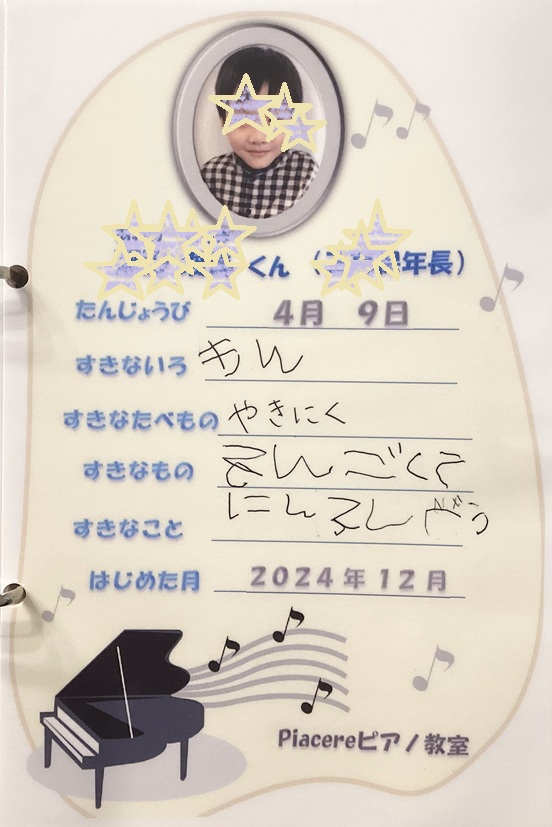 くん （ 年長）
たんじょうび 4月 9日
すきないろ きん
すきなたべもの やきにく
すきなもの さんごくし
すきなこと
はじめた月 2024年12月
Piacereピアノ教室